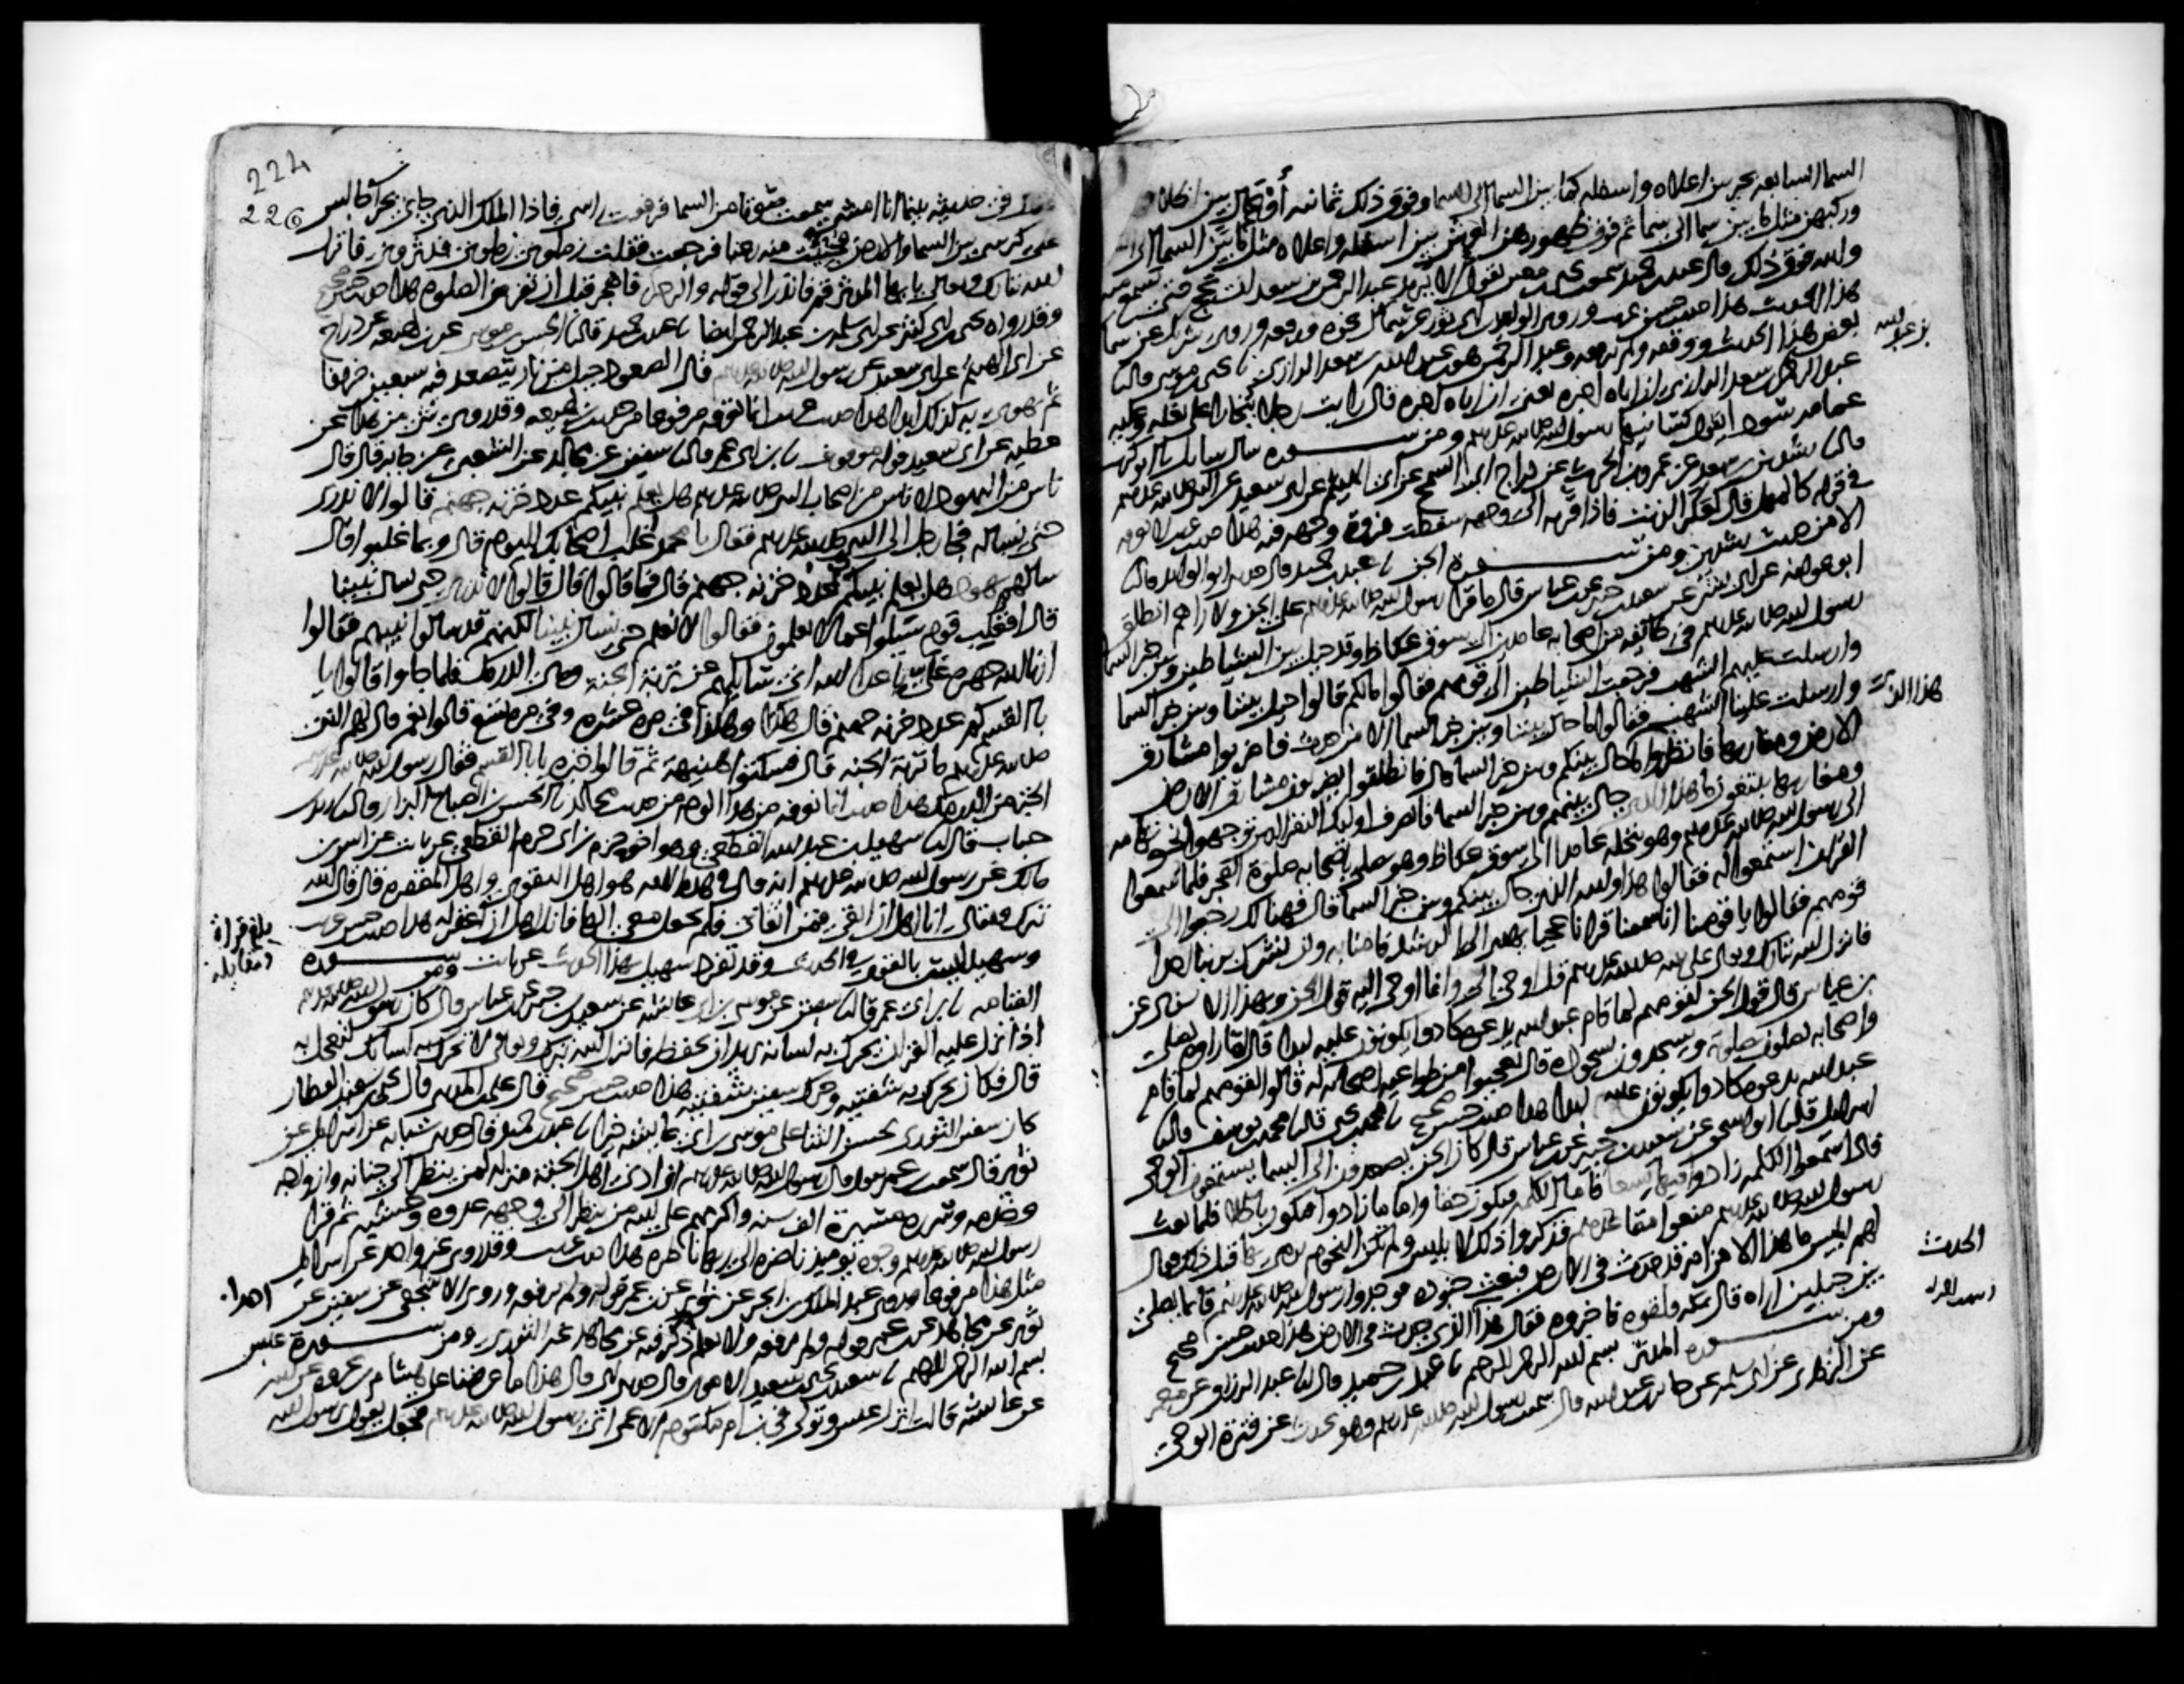 السما السابعه بحر بين اعلاه واسفله كما بين السما الى السما وفوق ذلك ثمانيه أوعال بين اظلافهن
وركبهن مثل ما بين سما الى سما ثم فوق ظهورهن العرش بين اسفله واعلاه مثل ما بين السما الى
والله فوق ذلك قال عبد بن حميد سمعت يحيى بن معين يقول الا يريد عبد الرحمن بن سعد ان يحج حتى نسمع منه
هذا الحديث هذا حديث حسن غريب وروى الوليد بن ابي ثور عن سماك نحوه ورفعه وروى شريك عن سماك
بعض هذا الحديث ووقفه ولم يرفعه وعبد الرحمن هو بن عبد الله بن سعد الرازي يحيى بن موسى قال
بن عبد الله
عبد الرحمن بن سعد الرازي ان اباه اخبره قال رايت رجلا ببخارا على بغله وعليه
عمامه سودا يقول كسانيها رسول الله صلى الله عليه وسلم ومن سوره سال سايل ابو كريب
قال رشدين بن سعد عن عمرو بن الحرث عن دراج ابي السمح عن ابي الهيثم عن ابي سعيد عن النبي صلى الله عليه وسلم
في قوله كالمهل قال كعكر الزيت فاذا قربه الى وجهه سقطت فروة وجهه فيه هذا حديث غريب لا نعرفه
الا من حديث رشدين ومن سورة الجن عبد بن حميد قال حدثني ابو الوليد قال
ابو عوانه عن ابي بشر عن سعيد بن جبير عن بن عباس قال ما قرا رسول الله صلى الله عليه وسلم على الجن ولا راهم انطلق
رسول الله صلى الله عليه وسلم في طائفه من اصحابه عامدين الى سوق عكاظ وقد حيل بين الشياطين وبين خبر السما
وارسلت عليهم الشهب فرجعت الشياطين الى قومهم فقالوا مالكم قالوا حيل بيننا وبين خبر السما
وارسلت علينا الشهب فقالوا ما حال بيننا وبين خبر السما الا من حدث فاضربوا مشارق
هذا الذي
الارض ومغاربها فانظروا ما حال بينكم وبين خبر السما قال فانطلقوا يضربون مشارق الارض
ومغاربها يبتغون ما هذا الذي حال بينهم وبين خبر السما فانصرف اوليك النفر الذين توجهوا نحو تهامه
الى رسول الله صلى الله عليه وسلم وهو بنخله عامدا الى سوق عكاظ وهو يصلي باصحابه صلوة الفجر فلما سمعوا
القران استمعوا له فقالوا هذا والله الذي حال بينكم وبين خبر السما قال فهنالك رجعوا الى
قومهم فقالوا يا قومنا انا سمعنا قرانا عجبا يهدي الى الرشد فامنا به ولن نشرك بربنا احدا
فانزل الله تبارك وتعالى على نبيه صلى الله عليه وسلم قل اوحي الي وانما اوحي اليه قول الجن وبهذا الاسناد عن
بن عباس قال قول الجن لقومهم لما قام عبد الله يدعوه كادوا يكونون عليه لبدا قال لما راوه يصلي
واصحابه يصلون بصلوته ويسجدون بسجوده قال تعجبوا من طواعيه اصحابه له قالوا لقومهم لما قام
عبد الله يدعوه كادوا يكونون عليه لبدا هذا حديث حسن صحيح محمد بن يحيى قال محمد بن يوسف قال
اسرايل قال ابو اسحق عن سعيد بن جبير عن بن عباس قال كان الجن يصعدون الى السما يستمعون الوحي
فاذا سمعوا الكلمه زادوا فيها تسعا فاما الكلمه فتكون حقا واما ما زادوا فيكون باطلا فلما بعث
رسول الله صلى الله عليه وسلم منعوا مقاعدهم فذكروا ذلك لابليس ولم تكن النجوم يرمى بها قبل ذلك فقال
لهم ابليس ما هذا الا من امر قد حدث في الارض فبعث جنوده فوجدوا رسول الله صلى الله عليه وسلم قايما يصلي
بين جبلين اراه قال بمكه فلقوه فاخبروه فقال هذا الذي حدث في الارض هذا حديث حسن صحيح
الحدث
ومن سوره المدثر بسم الله الرحمن الرحيم عبد بن حميد قال عبد الرزاق عن معمر
عن الزهري عن ابي سلمه عن جابر بن عبد الله قال سمعت رسول الله صلى الله عليه وسلم وهو يحدث عن فترة الوحي
224
226
فقال في حديثه بينما انا امشي سمعت صوتا من السما فرفعت راسي فاذا الملك الذي جاني بحرا جالس
على كرسي بين السما والارض فجثثت منه رعبا فرجعت فقلت زملوني زملوني فدثروني فانزل
الله تبارك وتعالى يا ايها المدثر قم فانذر الى قوله والرجز فاهجر قبل ان تفرض الصلوه هذا حديث حسن صحيح
وقد رواه يحيى بن ابي كثير عن ابي سلمه بن عبد الرحمن ايضا عبد بن حميد قال الحسن بن موسى عن بن لهيعه عن دراج
عن ابي الهيثم عن ابي سعيد عن رسول الله صلى الله عليه وسلم قال الصعود جبل من نار يتصعد فيه سبعين خريفا
ثم يهوي به كذلك ابدا هذا حديث غريب انما نعرفه مرفوعا من حديث بن لهيعه وقد روي شي من هذا عن
عطيه عن ابي سعيد قوله موقوف بن ابي عمر قال سفين عن مجالد عن الشعبي عن جابر قال قال
ناس من اليهود لاناس من اصحاب النبي صلى الله عليه وسلم هل يعلم نبيكم عدد خزنه جهنم قالوا لا ندري
حتى نساله فجا رجل الى النبي صلى الله عليه وسلم فقال يا محمد غلب اصحابك اليوم قال وبما غلبوا قال
سالهم يهود هل يعلم نبيكم عدد خزنه جهنم قال فما قالوا قال قالوا لا ندري حتى نسال نبينا
قال افغلب قوم سيلوا عما لا يعلمون فقالوا لا نعلم حتى نسال نبينا لكنهم قد سالوا نبيهم فقالوا
ارنا الله جهرة علي باعدا الله اني سايلهم عن تربة الجنة وهي الدرمك فلما جاوا قالوا يا
با القسم كم عدد خزنه جهنم قال هكذا وهكذا في مره عشره وفي مره تسع قالوا نعم قال لهم النبي
صلى الله عليه وسلم ما تربة الجنه قال فسكتوا هنيهة ثم قالوا خبزه يا با القسم فقال رسول الله صلى الله عليه وسلم
الخبز من الدرمك هذا حديث انما نعرفه من هذا الوجه من حديث مجالد الحسن بن الصباح البزار قال زيد بن
حباب قال سهيل بن عبد الله القطعي وهو اخو حزم بن ابي حزم القطعي عن ثابت عن انس بن
مالك عن رسول الله صلى الله عليه وسلم انه قال في هذه الايه هو اهل التقوى واهل المغفره قال قال الله
تبرك وتعالى انا اهل ان اتقى فمن اتقاني فلم يجعل معي الها فانا اهل ان اغفر له هذا حديث حسن غريب
بلغ قراة ومقابله
وسهيل ليس بالقوي في الحديث وقد تفرد سهيل بهذا الحديث عن ثابت ومن سوره
القيامه بن ابي عمر قال سفين عن موسى بن ابي عايشه عن سعيد بن جبير عن بن عباس قال كان رسول الله صلى الله عليه وسلم
اذا انزل عليه القران يحرك به لسانه يريد ان يحفظه فانزل الله تبرك وتعالى لا تحرك به لسانك لتعجل به
قال فكان يحرك به شفتيه وحرك سفين شفتيه هذا حديث حسن صحيح قال علي بن المديني قال يحيى بن سعيد القطان
كان سفين الثوري يحسن الثنا على موسى بن ابي عايشه خيرا عبد بن حميد قال حدثني شبابه عن اسرايل عن
ثوير قال سمعت بن عمر يقول قال رسول الله صلى الله عليه وسلم ان ادنى اهل الجنة منزلة لمن ينظر الى جنانه وازواجه
وخدمه وسرره مسيرة الف سنه واكرمهم على الله من ينظر الى وجهه غدوه وعشيه ثم قرا
رسول الله صلى الله عليه وسلم وجوه يوميذ ناضره الى ربها ناظره هذا حديث غريب وقد روى غير واحد عن اسرايل
مثل هذا مرفوعا وروى عبد الملك بن ابجر عن ثوير عن بن عمر قوله ولم يرفعه وروى الاشجعي عن سفين عن
ثوير عن مجاهد عن بن عمر قوله ولم يرفعه ولا نعلم احدا ذكر فيه عن مجاهد غير الثوري ومن سورة عبس
بسم الله الرحمن الرحيم سعيد بن يحيى بن سعيد الاموي قال حدثني ابي قال هذا ما عرضنا على هشام بن عروه عن ابيه
عن عايشه قالت انزل عبس وتولى في بن ام مكتوم الاعمى اتى رسول الله صلى الله عليه وسلم فجعل يقول يرسول الله